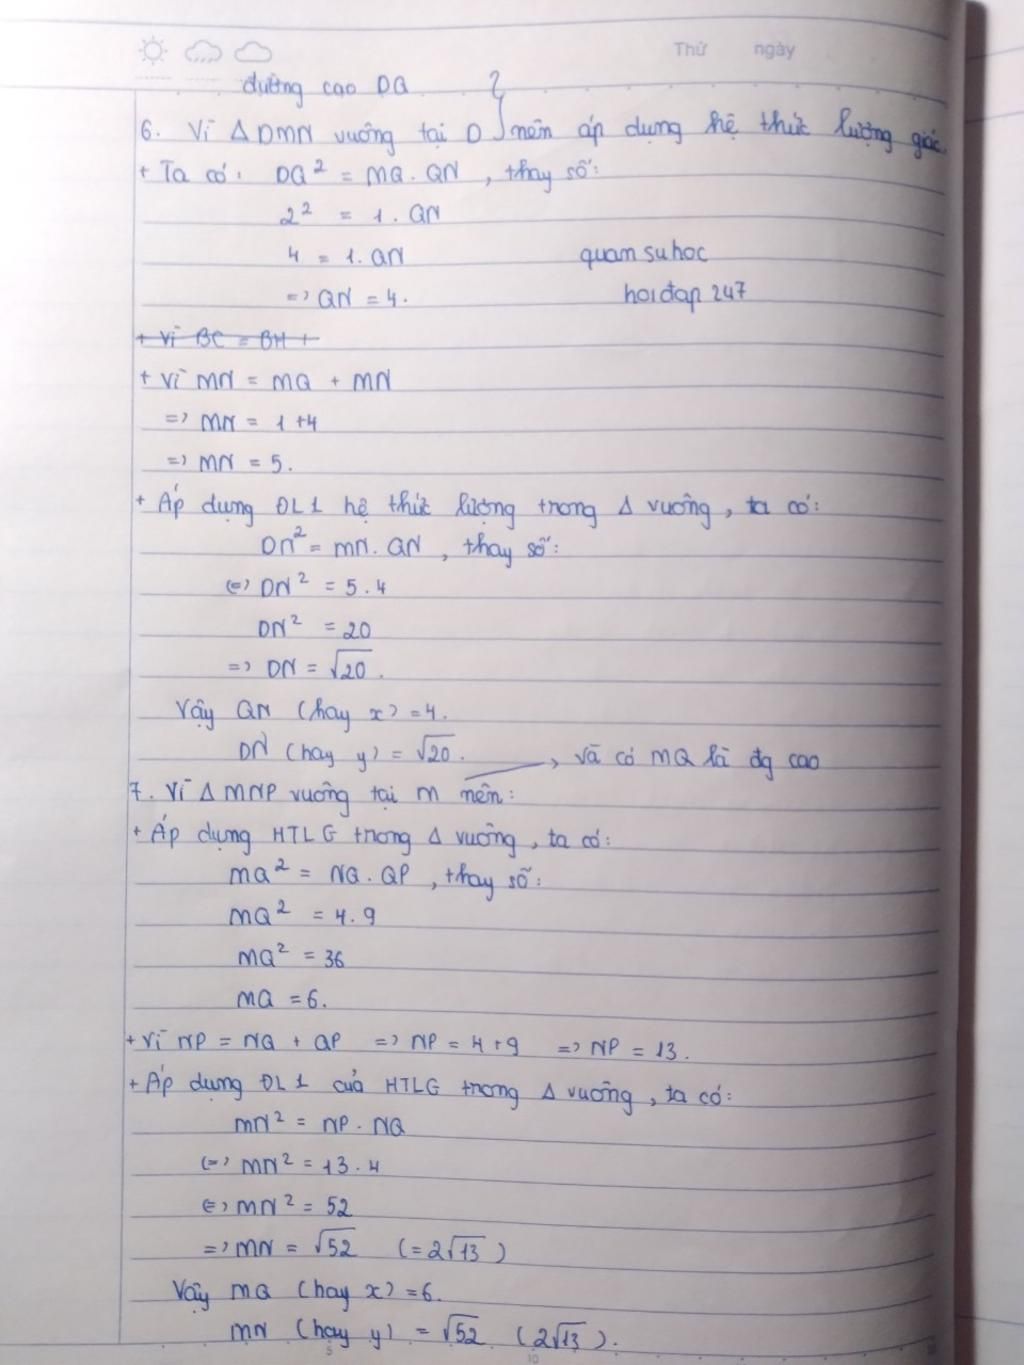 Thứ ngày
đường cao DQ
6. Vì Δ DMN vuông tại D nên áp dụng hệ thức lượng giác.
+ Ta có: DQ² = MQ . QN , thay số:
2² = 1 . QN
4 = 1. QN
quam suhoc
=> QN = 4.
hoidap 247
+ Vì BC = BH +
+ Vì MN = MQ + MN
=> MN = 1+4
=> MN = 5.
+ Áp dụng ĐL1 hệ thức lượng trong Δ vuông, ta có:
DN² = MN. QN , thay số:
(=) DN² = 5.4
DN² = 20
=> DN = √20.
Vậy QN (hay x) = 4.
DN (hay y) = √20.
, và có MQ là đg cao
7. Vì Δ MNP vuông tại M nên:
+ Áp dụng HTLG trong Δ vuông, ta có:
MQ² = NQ. QP , thay số:
MQ² = 4.9
MQ² = 36
MQ = 6.
+ Vì NP = NQ + QP => NP = 4+9 => NP = 13.
+ Áp dụng ĐL1 của HTLG trong Δ vuông, ta có:
MN² = NP. NQ
(=> MN² = 13.4
(=> MN² = 52
=> MN = √52 (= 2√13)
Vậy MQ (hay x) = 6.
MN (hay y) = √52 (2√13).
5 10